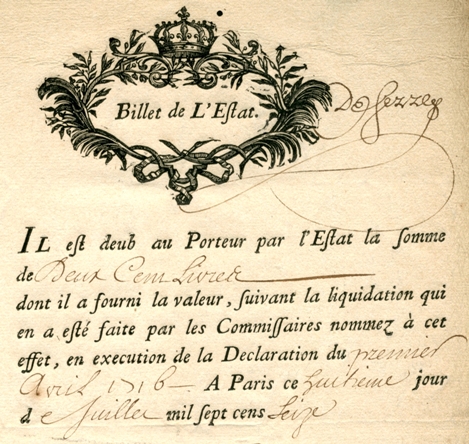 Billet de L'Estat.
IL est deub au Porteur par l'Estat la somme
de Deux Cent Livres
dont il a fourni la valeur, suivant la liquidation qui
en a esté faite par les Commissaires nommez à cet
effet, en execution de la Declaration du premier
Avril 1716. A Paris ce huitieme jour
de Juillet mil sept cens Seize